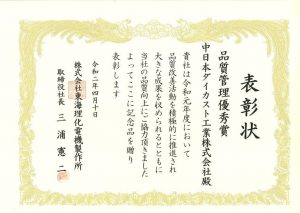 表彰状
品質管理優秀賞
中日本ダイカスト工業株式会社殿
貴社は令和元年度において
品質改善活動を積極的に推進され
大きな成果を収められるとともに
当社の品質向上にご協力頂きました
よってここに記念品を贈り
表彰します
令和二年四月十日
株式会社東海理化電機製作所
取締役社長 三浦憲二